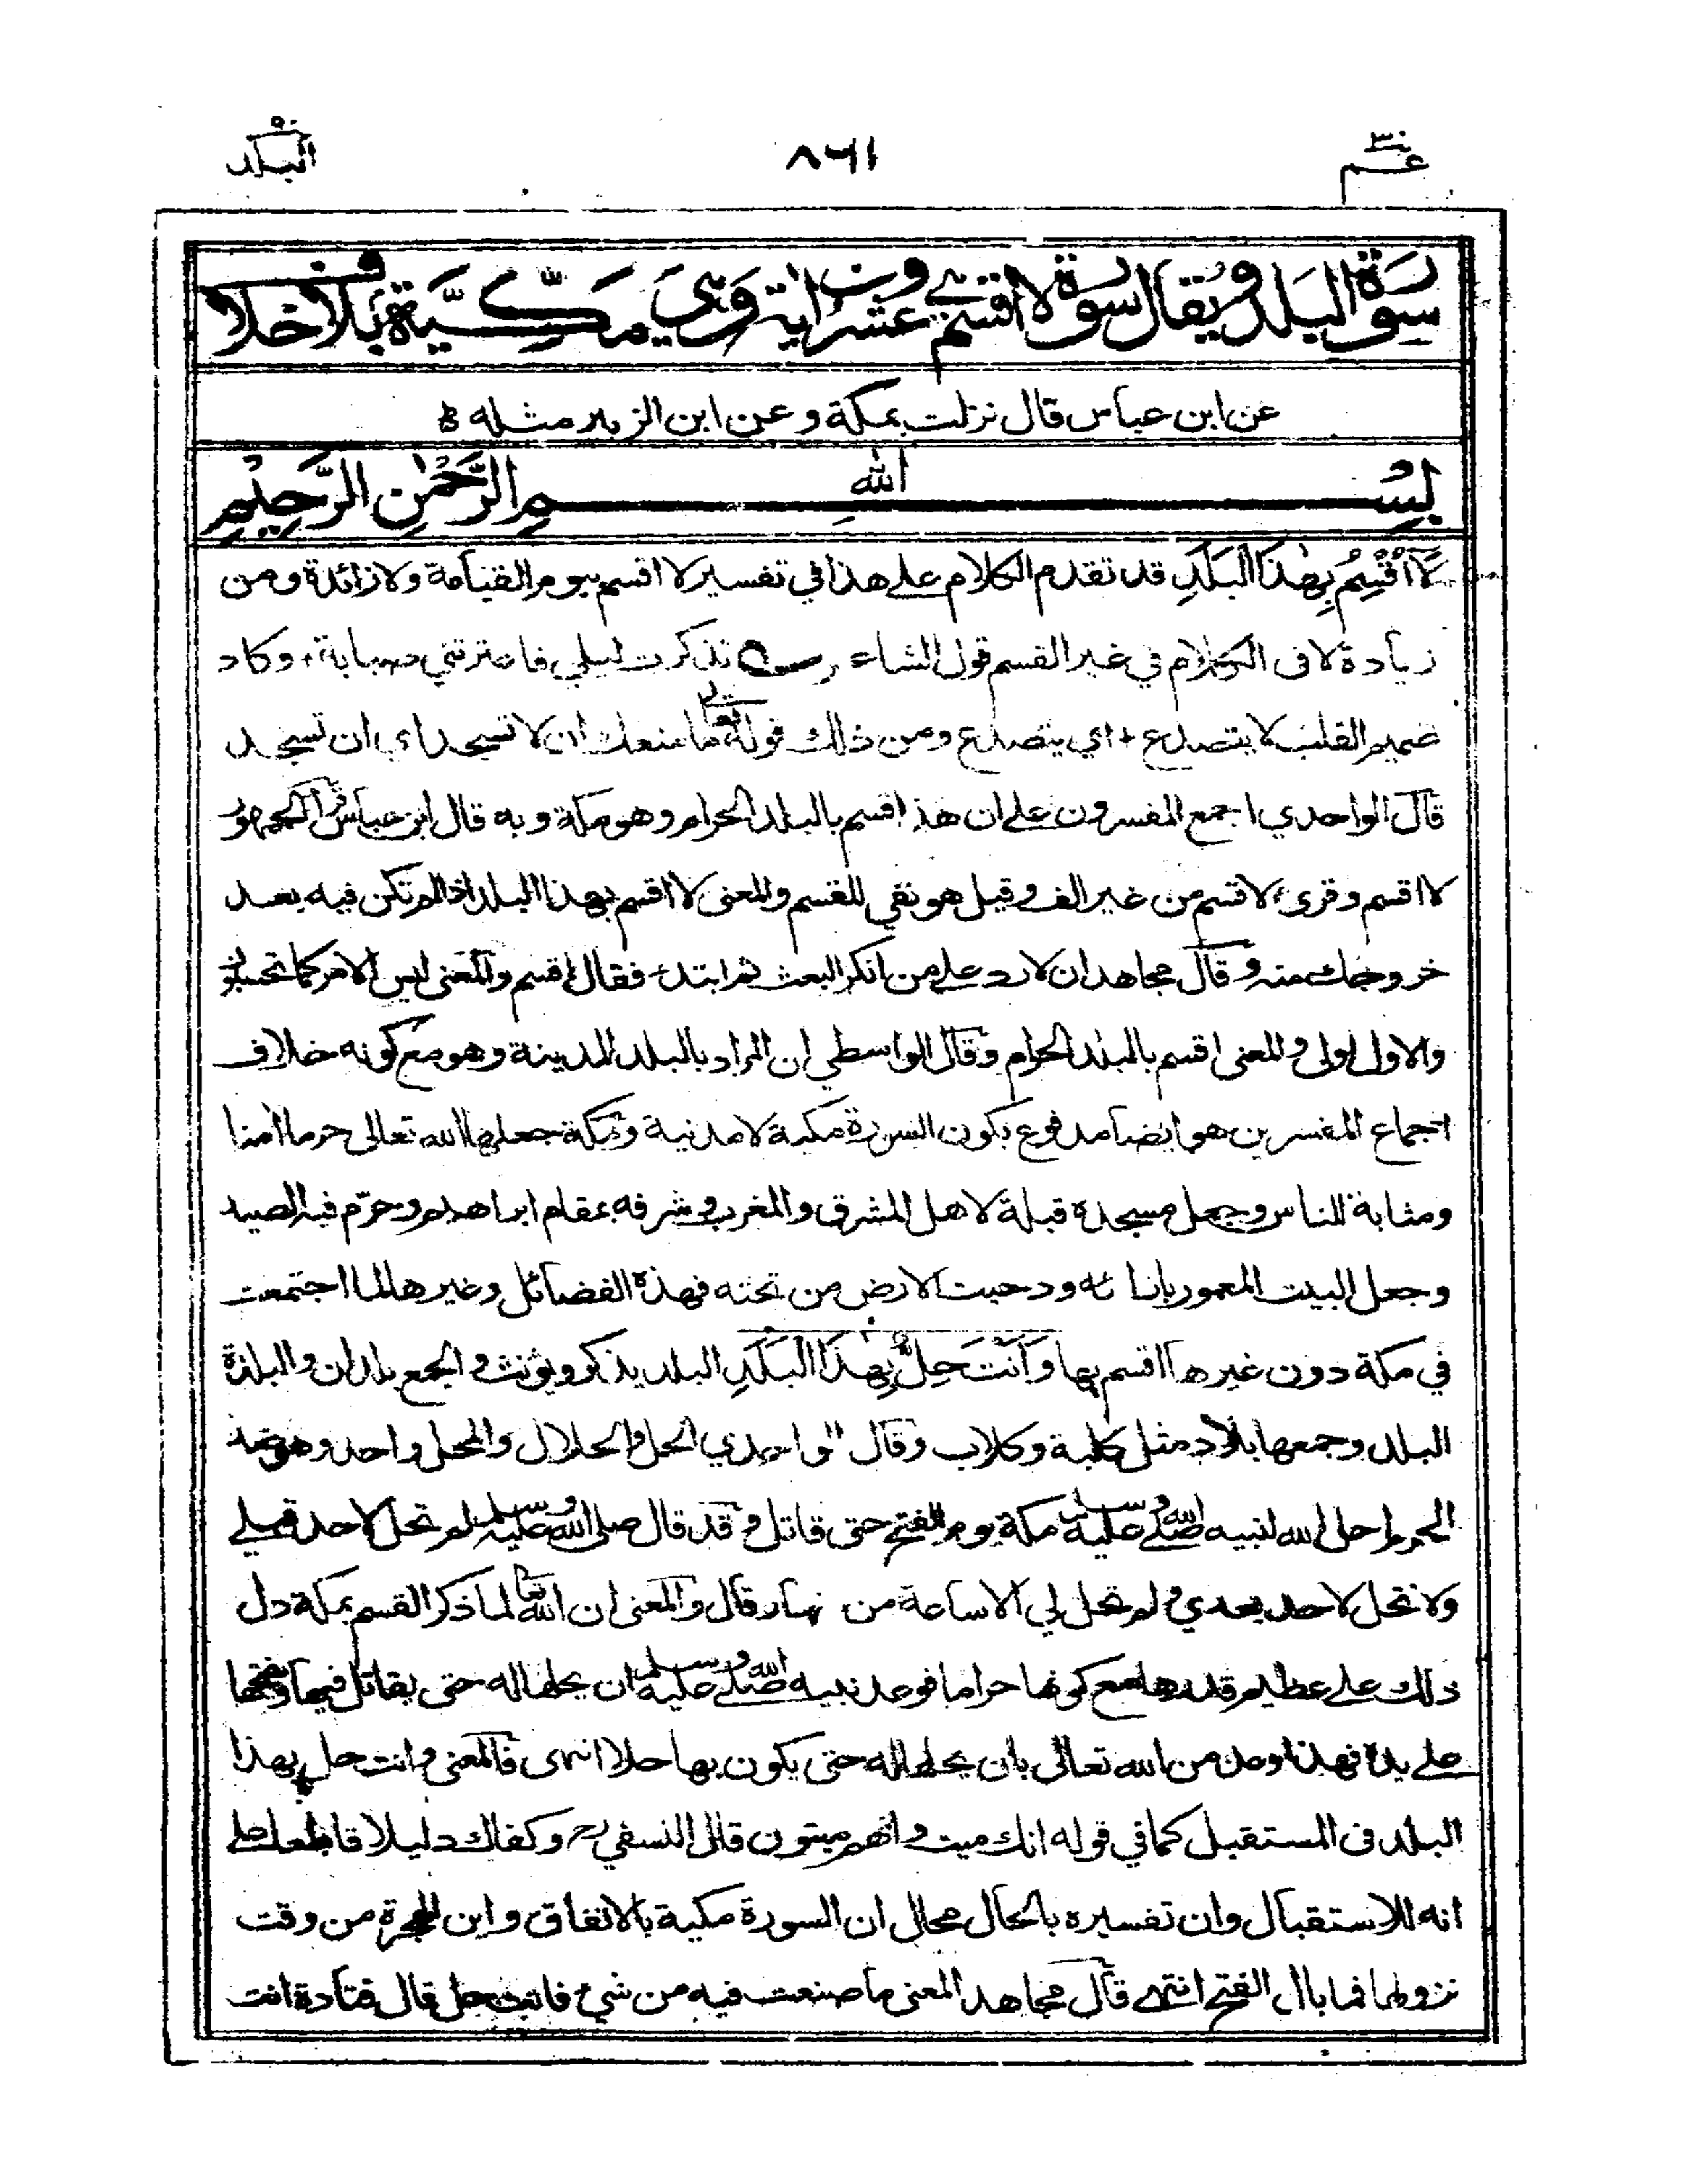 عم ٣٠
٨٦١
البلد ٩٠
سورة البلد ويقال سورة لا اقسم عشرون اية وهي مكية بلا خلاف
عن ابن عباس قال نزلت بمكة وعن ابن الزبير مثله
بِسْمِ اللهِ الرَّحْمٰنِ الرَّحِيْمِ
لَآ اُقْسِمُ بِهٰذَا الْبَلَدِ قد تقدم الكلام على هذا في تفسير لا اقسم بيوم القيامة ولا زائدة ومن
زيادة لا فى الكلام في غير القسم قول الشاعر تذكرت ليلى فاعترتني صبابة + وكاد
ضمير القلب لا يتصدع + اي يتصدع ومن ذلك قوله تعالى ما منعك ان لا تسجد اي ان تسجد
قال الواحدي اجمع المفسرون على ان هذا قسم بالبلد الحرام وهو مكة وبه قال ابن عباس قرأ الجمهور
لا اقسم وقرئ لاقسم من غير الف وقيل هو نفي للقسم والمعنى لا اقسم بهذا البلد اذا لم تكن فيه بعد
خروجك منه وقال مجاهد ان لا رد على من انكر البعث ثم ابتدء فقال اقسم والمعنى ليس الامر كما تحسبون
والاول اولى والمعنى اقسم بالبلد الحرام وقال الواسطي ان المراد بالبلد المدينة وهو مع كونه خلاف
اجماع المفسرين هو ايضا مدفوع بكون السورة مكية لا مدنية ومكة جعلها الله تعالى حرما امنا
ومثابة للناس وجعل مسجده قبلة لاهل المشرق والمغرب وشرفه بمقام ابراهيم وحرّم فيه الصيد
وجعل البيت المعمور بازائه ودحيت الارض من تحته فهذه الفضائل وغيرها لما اجتمعت
في مكة دون غيرها اقسم بها وَاَنْتَ حِلٌّ بِهٰذَا الْبَلَدِ البلد يذكر ويؤنث والجمع بلدان والبلدة
البلد وجمعها بلاد مثل كلبة وكلاب وقال الواحدي الحل والحلال والمحل واحد وهو ضد
المحرم احل الله لنبيه صلى الله عليه وسلم مكة يوم الفتح حتى قاتل وقد قال صلى الله عليه وسلم لم تحل لاحد قبلي
ولا تحل لاحد بعدي ولم تحل لي الا ساعة من نهار قال والمعنى ان الله تعالى لما ذكر القسم بمكة دل
ذلك على عظيم قدرها مع كونها حراما فوعد نبيه صلى الله عليه وسلم ان يحلها له حتى يقاتل فيها ويفتحها
على يده فهذا وعد من الله تعالى بان يحلها له حتى يكون بها حلا انتهى فالمعنى وانت حل بهذا
البلد فى المستقبل كما في قوله انك ميت وانهم ميتون قال النسفي رح وكفاك دليلا قاطعا على
انه للاستقبال وان تفسيره بالحال محال ان السورة مكية بالاتفاق واين الهجرة من وقت
نزولها فما بال الفتح انتهى قال مجاهد المعنى ما صنعت فيه من شيء فانت حل قال قتادة انت